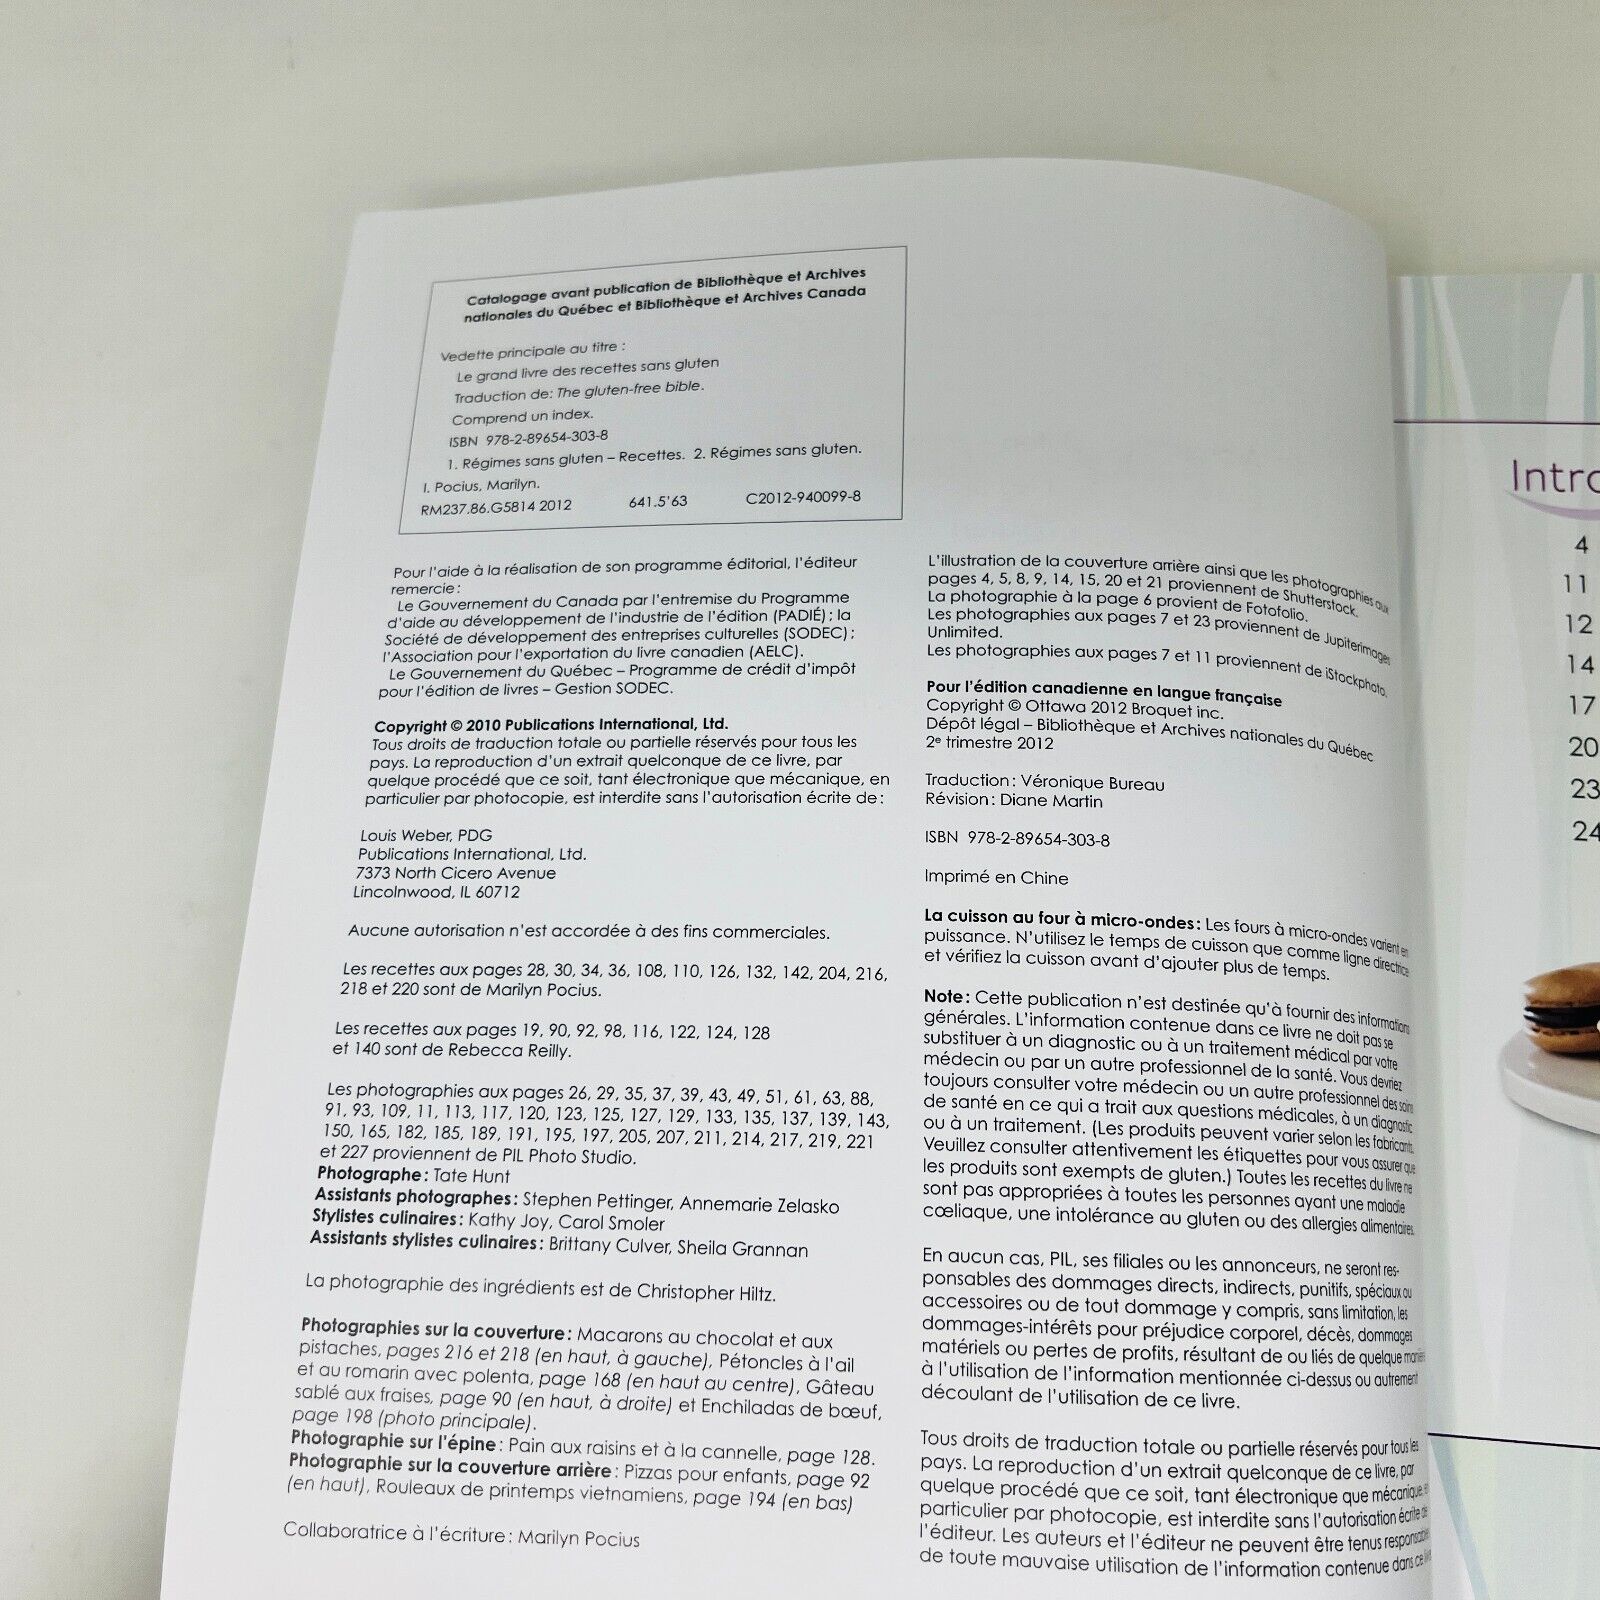 Catalogage avant publication de Bibliothèque et Archives
nationales du Québec et Bibliothèque et Archives Canada
Vedette principale au titre :
Le grand livre des recettes sans gluten
Traduction de: The gluten-free bible.
Comprend un index.
ISBN 978-2-89654-303-8
1. Régimes sans gluten – Recettes. 2. Régimes sans gluten.
I. Pocius, Marilyn.
RM237.86.G5814 2012 641.5'63 C2012-940099-8
Pour l'aide à la réalisation de son programme éditorial, l'éditeur
remercie :
Le Gouvernement du Canada par l'entremise du Programme
d'aide au développement de l'industrie de l'édition (PADIÉ) ; la
Société de développement des entreprises culturelles (SODEC) ;
l'Association pour l'exportation du livre canadien (AELC).
Le Gouvernement du Québec – Programme de crédit d'impôt
pour l'édition de livres – Gestion SODEC.
Copyright © 2010 Publications International, Ltd.
Tous droits de traduction totale ou partielle réservés pour tous les
pays. La reproduction d'un extrait quelconque de ce livre, par
quelque procédé que ce soit, tant électronique que mécanique, en
particulier par photocopie, est interdite sans l'autorisation écrite de :
Louis Weber, PDG
Publications International, Ltd.
7373 North Cicero Avenue
Lincolnwood, IL 60712
Aucune autorisation n'est accordée à des fins commerciales.
Les recettes aux pages 28, 30, 34, 36, 108, 110, 126, 132, 142, 204, 216,
218 et 220 sont de Marilyn Pocius.
Les recettes aux pages 19, 90, 92, 98, 116, 122, 124, 128
et 140 sont de Rebecca Reilly.
Les photographies aux pages 26, 29, 35, 37, 39, 43, 49, 51, 61, 63, 88,
91, 93, 109, 11, 113, 117, 120, 123, 125, 127, 129, 133, 135, 137, 139, 143,
150, 165, 182, 185, 189, 191, 195, 197, 205, 207, 211, 214, 217, 219, 221
et 227 proviennent de PIL Photo Studio.
Photographe : Tate Hunt
Assistants photographes : Stephen Pettinger, Annemarie Zelasko
Stylistes culinaires : Kathy Joy, Carol Smoler
Assistants stylistes culinaires : Brittany Culver, Sheila Grannan
La photographie des ingrédients est de Christopher Hiltz.
Photographies sur la couverture : Macarons au chocolat et aux
pistaches, pages 216 et 218 (en haut, à gauche), Pétoncles à l'ail
et au romarin avec polenta, page 168 (en haut au centre), Gâteau
sablé aux fraises, page 90 (en haut, à droite) et Enchiladas de bœuf,
page 198 (photo principale).
Photographie sur l'épine : Pain aux raisins et à la cannelle, page 128.
Photographie sur la couverture arrière : Pizzas pour enfants, page 92
(en haut), Rouleaux de printemps vietnamiens, page 194 (en bas)
Collaboratrice à l'écriture : Marilyn Pocius
L'illustration de la couverture arrière ainsi que les photographies aux
pages 4, 5, 8, 9, 14, 15, 20 et 21 proviennent de Shutterstock.
La photographie à la page 6 provient de Fotofolio.
Les photographies aux pages 7 et 23 proviennent de Jupiterimages
Unlimited.
Les photographies aux pages 7 et 11 proviennent de iStockphoto.
Pour l'édition canadienne en langue française
Copyright © Ottawa 2012 Broquet inc.
Dépôt légal – Bibliothèque et Archives nationales du Québec
2e trimestre 2012
Traduction : Véronique Bureau
Révision : Diane Martin
ISBN 978-2-89654-303-8
Imprimé en Chine
La cuisson au four à micro-ondes : Les fours à micro-ondes varient en
puissance. N'utilisez le temps de cuisson que comme ligne directrice
et vérifiez la cuisson avant d'ajouter plus de temps.
Note : Cette publication n'est destinée qu'à fournir des informations
générales. L'information contenue dans ce livre ne doit pas se
substituer à un diagnostic ou à un traitement médical par votre
médecin ou par un autre professionnel de la santé. Vous devriez
toujours consulter votre médecin ou un autre professionnel des soins
de santé en ce qui a trait aux questions médicales, à un diagnostic
ou à un traitement. (Les produits peuvent varier selon les fabricants.
Veuillez consulter attentivement les étiquettes pour vous assurer que
les produits sont exempts de gluten.) Toutes les recettes du livre ne
sont pas appropriées à toutes les personnes ayant une maladie
cœliaque, une intolérance au gluten ou des allergies alimentaires.
En aucun cas, PIL, ses filiales ou les annonceurs, ne seront res-
ponsables des dommages directs, indirects, punitifs, spéciaux ou
accessoires ou de tout dommage y compris, sans limitation, les
dommages-intérêts pour préjudice corporel, décès, dommages
matériels ou pertes de profits, résultant de ou liés de quelque manière
à l'utilisation de l'information mentionnée ci-dessus ou autrement
découlant de l'utilisation de ce livre.
Tous droits de traduction totale ou partielle réservés pour tous les
pays. La reproduction d'un extrait quelconque de ce livre, par
quelque procédé que ce soit, tant électronique que mécanique, et
particulier par photocopie, est interdite sans l'autorisation écrite de
l'éditeur. Les auteurs et l'éditeur ne peuvent être tenus responsables
de toute mauvaise utilisation de l'information contenue dans ce
Intro
4
11
12
14
17
20
23
24